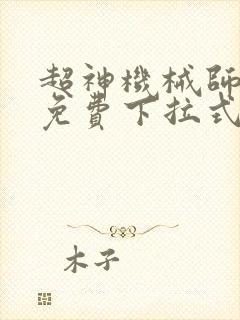 超神機械師
免費下拉式
木子